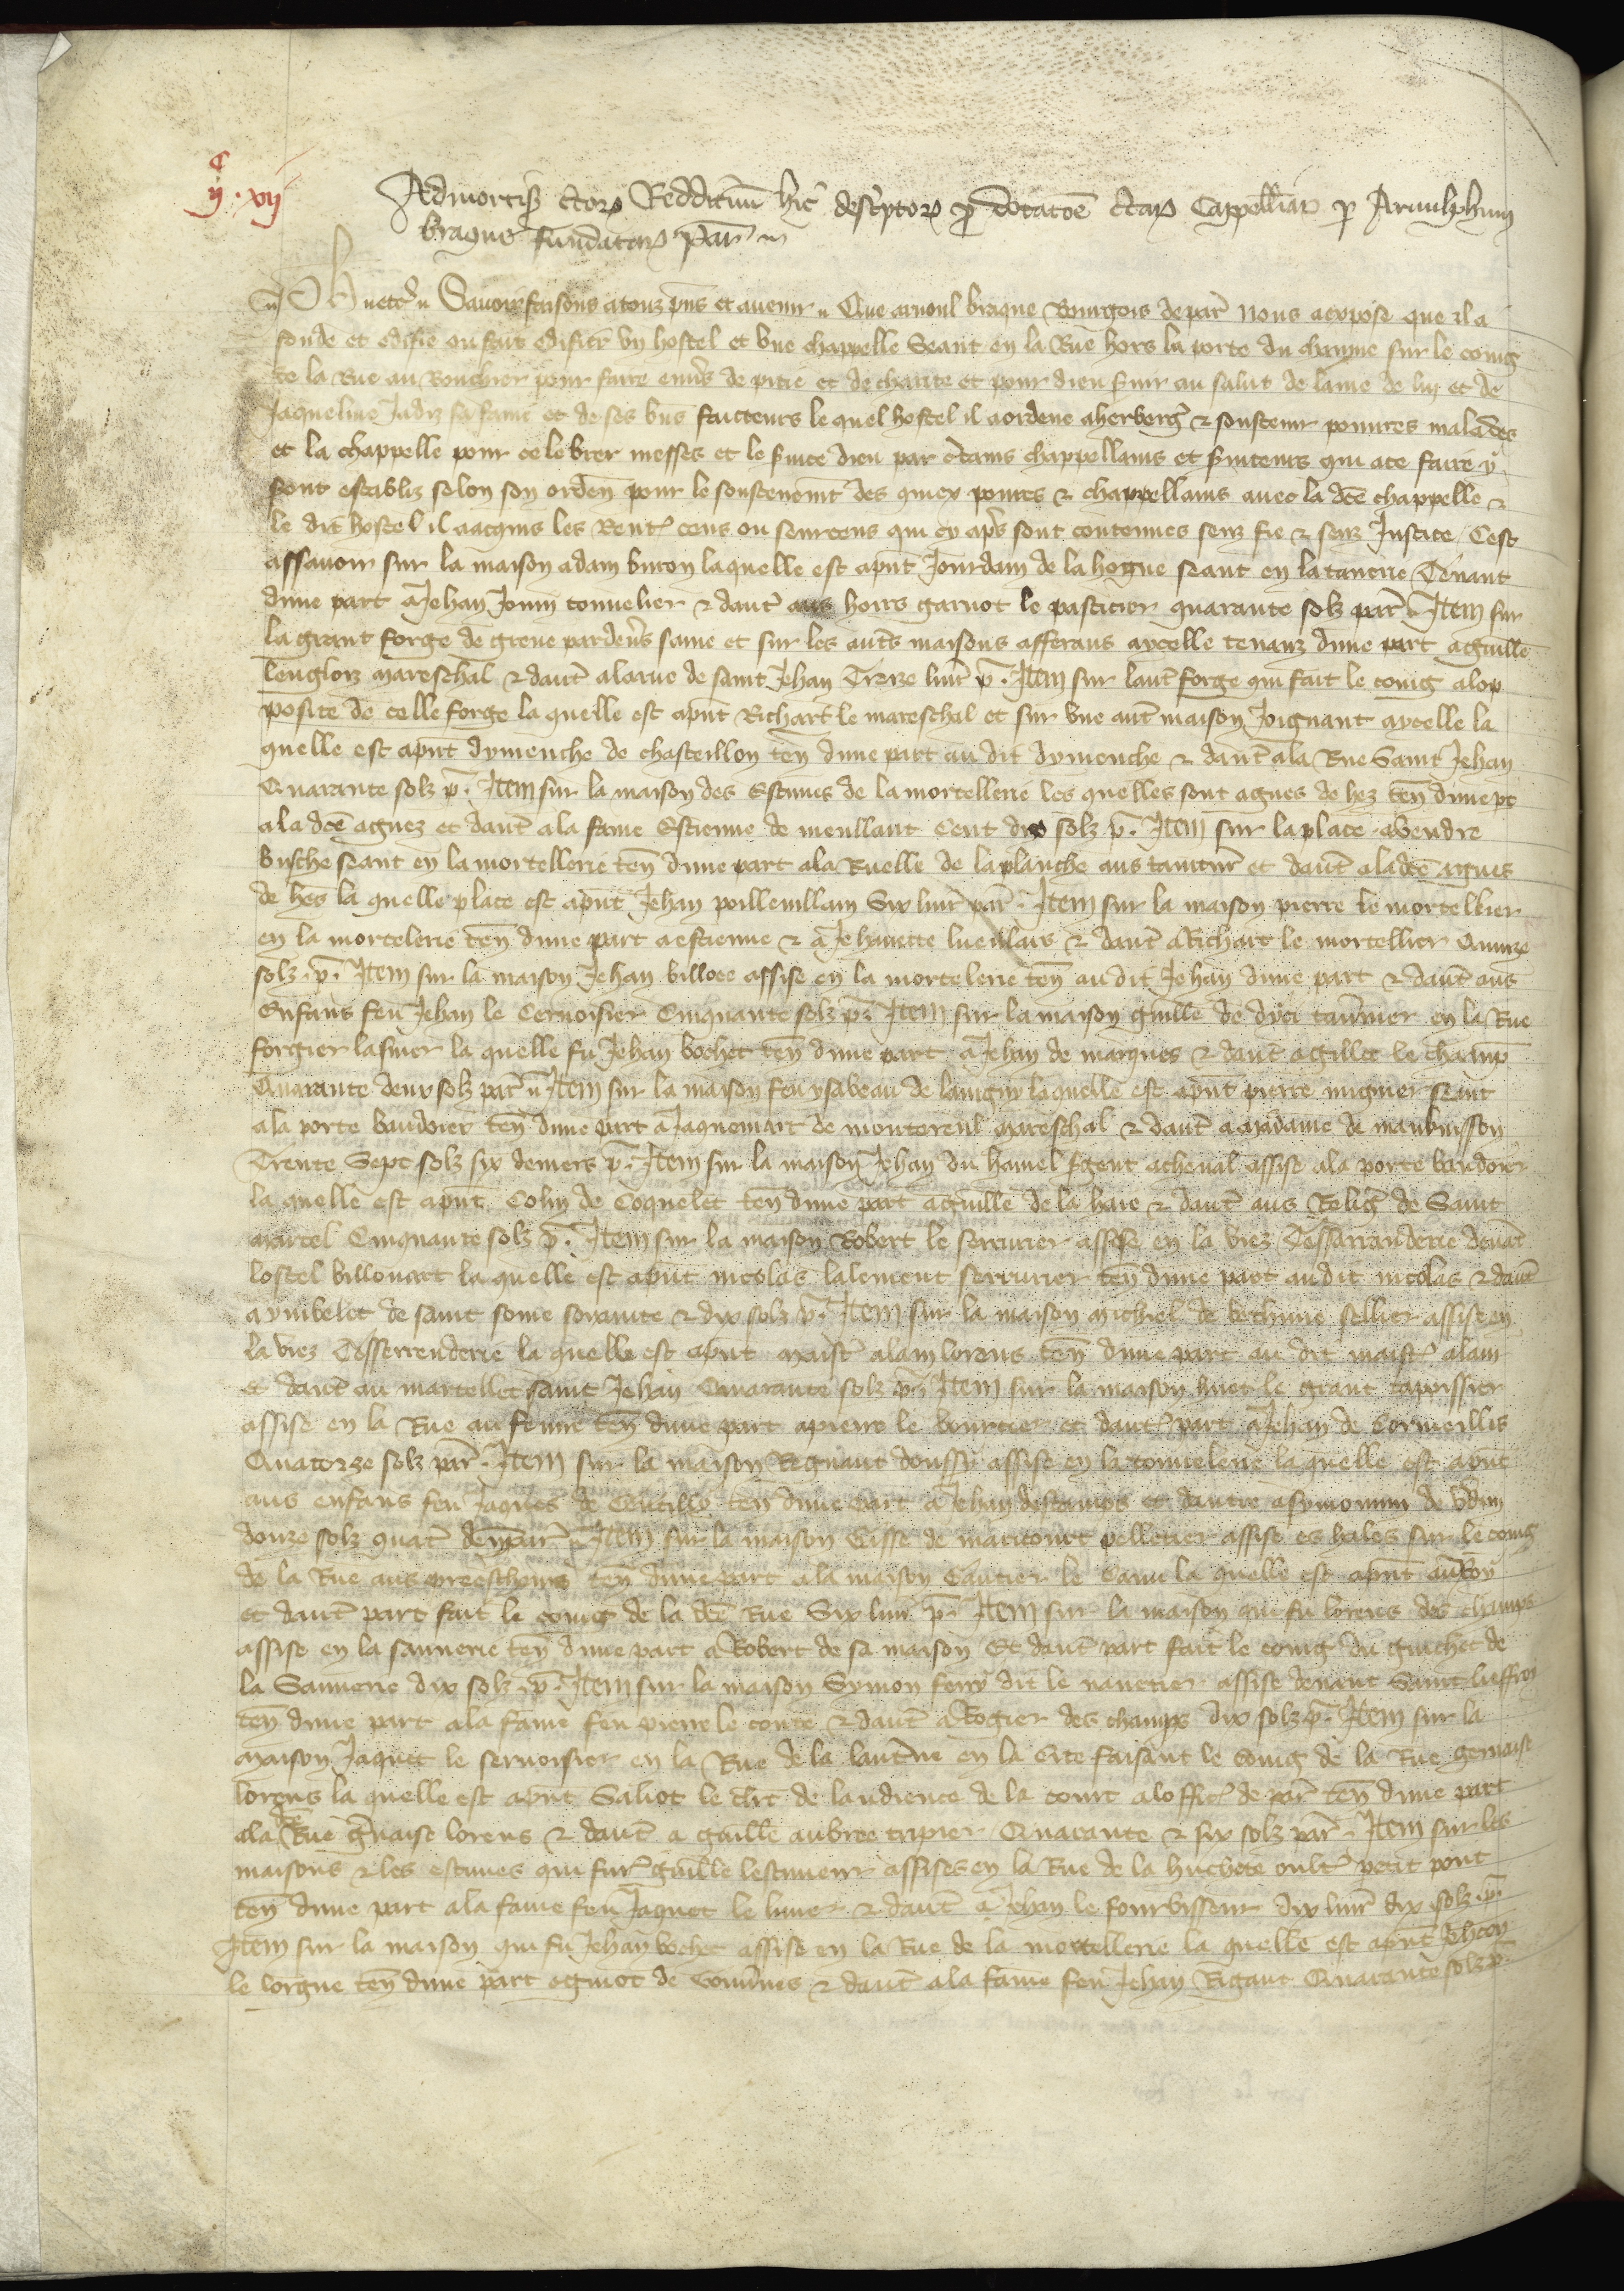 c
ij . xvij
Admortiz̃ c̃toꝝ Reddituũ hic̃ descp̃toꝝ ꝓ dotacõe c̃taꝝ Cappell̃iaꝝ ꝑ Arnulphum
braque fundataꝝ Par̃
Ph̃ etc̃ Sauoir faisons a touz p̃ns et auenir Que arnoul braque Bourgois de par̃ Nous a expose que il a
fonde et edifie ou fait edifier vn hostel et vne chappelle Seant en la Rue hors la porte du chaume sur le coing
de la Rue au Bouchier pour faire euur̃s de pitie et de charite et pour dieu s̃uir au salut de lame de luy et de
Jaqueline Jadiz sa fame et de ses bns faicteurs le quel hostel il a ordene a herberg̃ & soustenir poures malades
et la chappelle pour celebrer messes et le s̃uice dieu par c̃tains chappellains et s̃uiteurs qui a ce faire y
sont establiz selon son orden̄ pour le soustenem̃t des quiex poures & chappellains auec la dc̃e chappelle &
le dit hostel il a acquis les Rent̃ cens ou seurcens qui cy ap̃s sont contenues senz fie & senz Justice / Cest
assauoir sur la maison adam buron laquelle est ap̃nt Jourdain de la hogue seant en la tanerie Tenant
dune part a Jehan Jouin tonnelier & daut̃ aus hoirs garnot le pasticier quarante solz par̃ . Item sur
la grant forge de greue par deu̾s saine et sur les aut̃s maisons afferans aycelle tenanz dune part aguill̃e
lenglois mareschal & daut̃ a la rue de saint Jehan Treze liur̃ p̃ . Item sur laut̃ forge qui fait le coing a lop
posite de celle forge la quelle est ap̃nt Richart le mareschal et sur vne aut̃ maison Joignant aycelle la
quelle est ap̃nt dymenche de chasteillon ten̄ dune part au dit dymenche & daut̃ a la Rue Saint Jehan
Quarante solz p̃ . Item sur la maison des Estuues de la mortellerie les quelles sont agnes de hez ten̄ dune pt̃
a la dc̃e agnez et daut̃ a la fame Estienne de meullant Cent dix solz p̃ . Item sur la place a vendre
busche seant en la mortellerie ten̄ dune part a la Ruelle de la planche aus tainturs̃ et daut̃ a la dc̃e agnes
de hes la quelle place est ap̃nt Jehan poilleuillain Six liur̃ par̃ . Item sur la maison pierre le mortellier
en la mortelerie ten̄ dune part a estienne & a Jehannette lueillais & daut̃ a Richart le mortellier Quinze
solz . p̃ . Item sur la maison Jehan billoee assise en la mortelerie ten̄ au dit Jehan dune part & daut̃ aus
Enfans feu Jehan le Ceruoisier Cinquante solz p̃ . Item sur la maison guill̃e de dyci tau̾nier en la Rue
forgier lasnier la quelle fu Jehan bochet ten̄ dune part a Jehan de marques & daut̃ a gillet le champ̃
Quarante deux solz par̃ Item sur la maison feu ysabeau de laingny laquelle est ap̃nt pierre mignier seant
a la porte baudoier ten̄ dune part a Jaquemart de monstereul mareschal & daut̃ a madame de maubuisson
Trente Sept solz six deniers p̃ . Item sur la maison Jehan du hamel s̃gent a cheual assise a la porte baudoier
la quelle est ap̃nt Colin de Coquelet ten̄ dune part aguill̃e de la haie & daut̃ aus Relig̃ de Saint
marcel Cinquante solz p̃ . Item sur la maison Robert le serrurier assise en la viez Tessarranderie deuant
lostel billouart la quelle est ap̃nt nicolas lalement serrurier ten̄ dune part au dit nicolas & daut̃
a ymbelet de saint some soixante & dix solz p̃ . Item sur la maison michiel de bethune sellier assise en
la viez Tesserrenderie la quelle est ap̃nt maist̃ alain lorens ten̄ dune part au dit maist̃ alain
et daut̃ au martellet saint Jehan Quarante solz p̃ . Item sur la maison huet le grant tapissier
assise en la Rue au feurre ten̄ dune part a pierre le bourcier et daut̃ part a Jehan de Cormeillis
Quatorze solz par̃ . Item sur la maison Regnaut douffy assise en la tonnelerie la quelle est ap̃nt
aus enfans feu Jaques de Gentilly ten̄ dune part a Jehan destampes et dautre a symonnin de
douze solz quat̃ den̄ par̃ Item sur la maison Gisse de maricourt pelletier assise es hales sur le coing
de la Rue aus preescheurs ten̄ dune part a la maison Gautier le Canu la quelle est ap̃nt au Roy
et daut̃ part fait le coing de la dc̃e Rue Six liur̃ p̃ . Item sur la maison qui fu lorens des champs
assise en la saunerie ten̄ dune part a Robert de sa maison Et daut̃ part fait le coing du guichet de
la Saunerie dix solz . p̃ . Item sur la maison Symon feny dit le nauetier assise deuant Saint lieffroy
ten̄ dune part a la fame feu pierre le conte & daut̃ a Rogier des champs dix solz p̃ . Item sur la
maison Jaquet le seruoisier en la Rue de la lant̾ne en la Cite faisant le coing de la Rue geruaise
lorens la quelle est ap̃nt Saliot le clerc de laudience de la court a loffic̃ de par̃ ten̄ dune part
a la Rue g̾uaise lorens & daut̃ a guill̃e aubree tripier Quarante & six solz par̃ . Item sur les
maisons & les estuues qui fur̃ guill̃e lestuueur assises en la Rue de la huchete oult̃ petit pont
ten̄ dune part a la fame feu Jaquet le liure & daut̃ a Jehan le fourbisseur dix liur̃ dix solz . p̃ .
Item sur la maison qui fu Jehan bochet assise en la Rue de la mortellerie la quelle est ap̃nt Jehan
le lorgne ten̄ dune part a guiot de & daut̃ a la fame feu Jehan Rigaut Quarante solz p̃ .